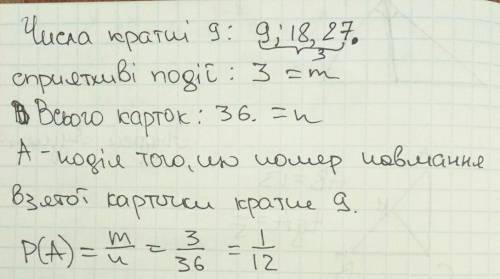 Числа кратні 9: 9; 18, 27.
3
сприятливі події: 3 = m
Всього карток: 36. = n
А - подія того, що номер навмання
взятої карточки кратне 9.
P(A) = m/n = 3/36 = 1/12